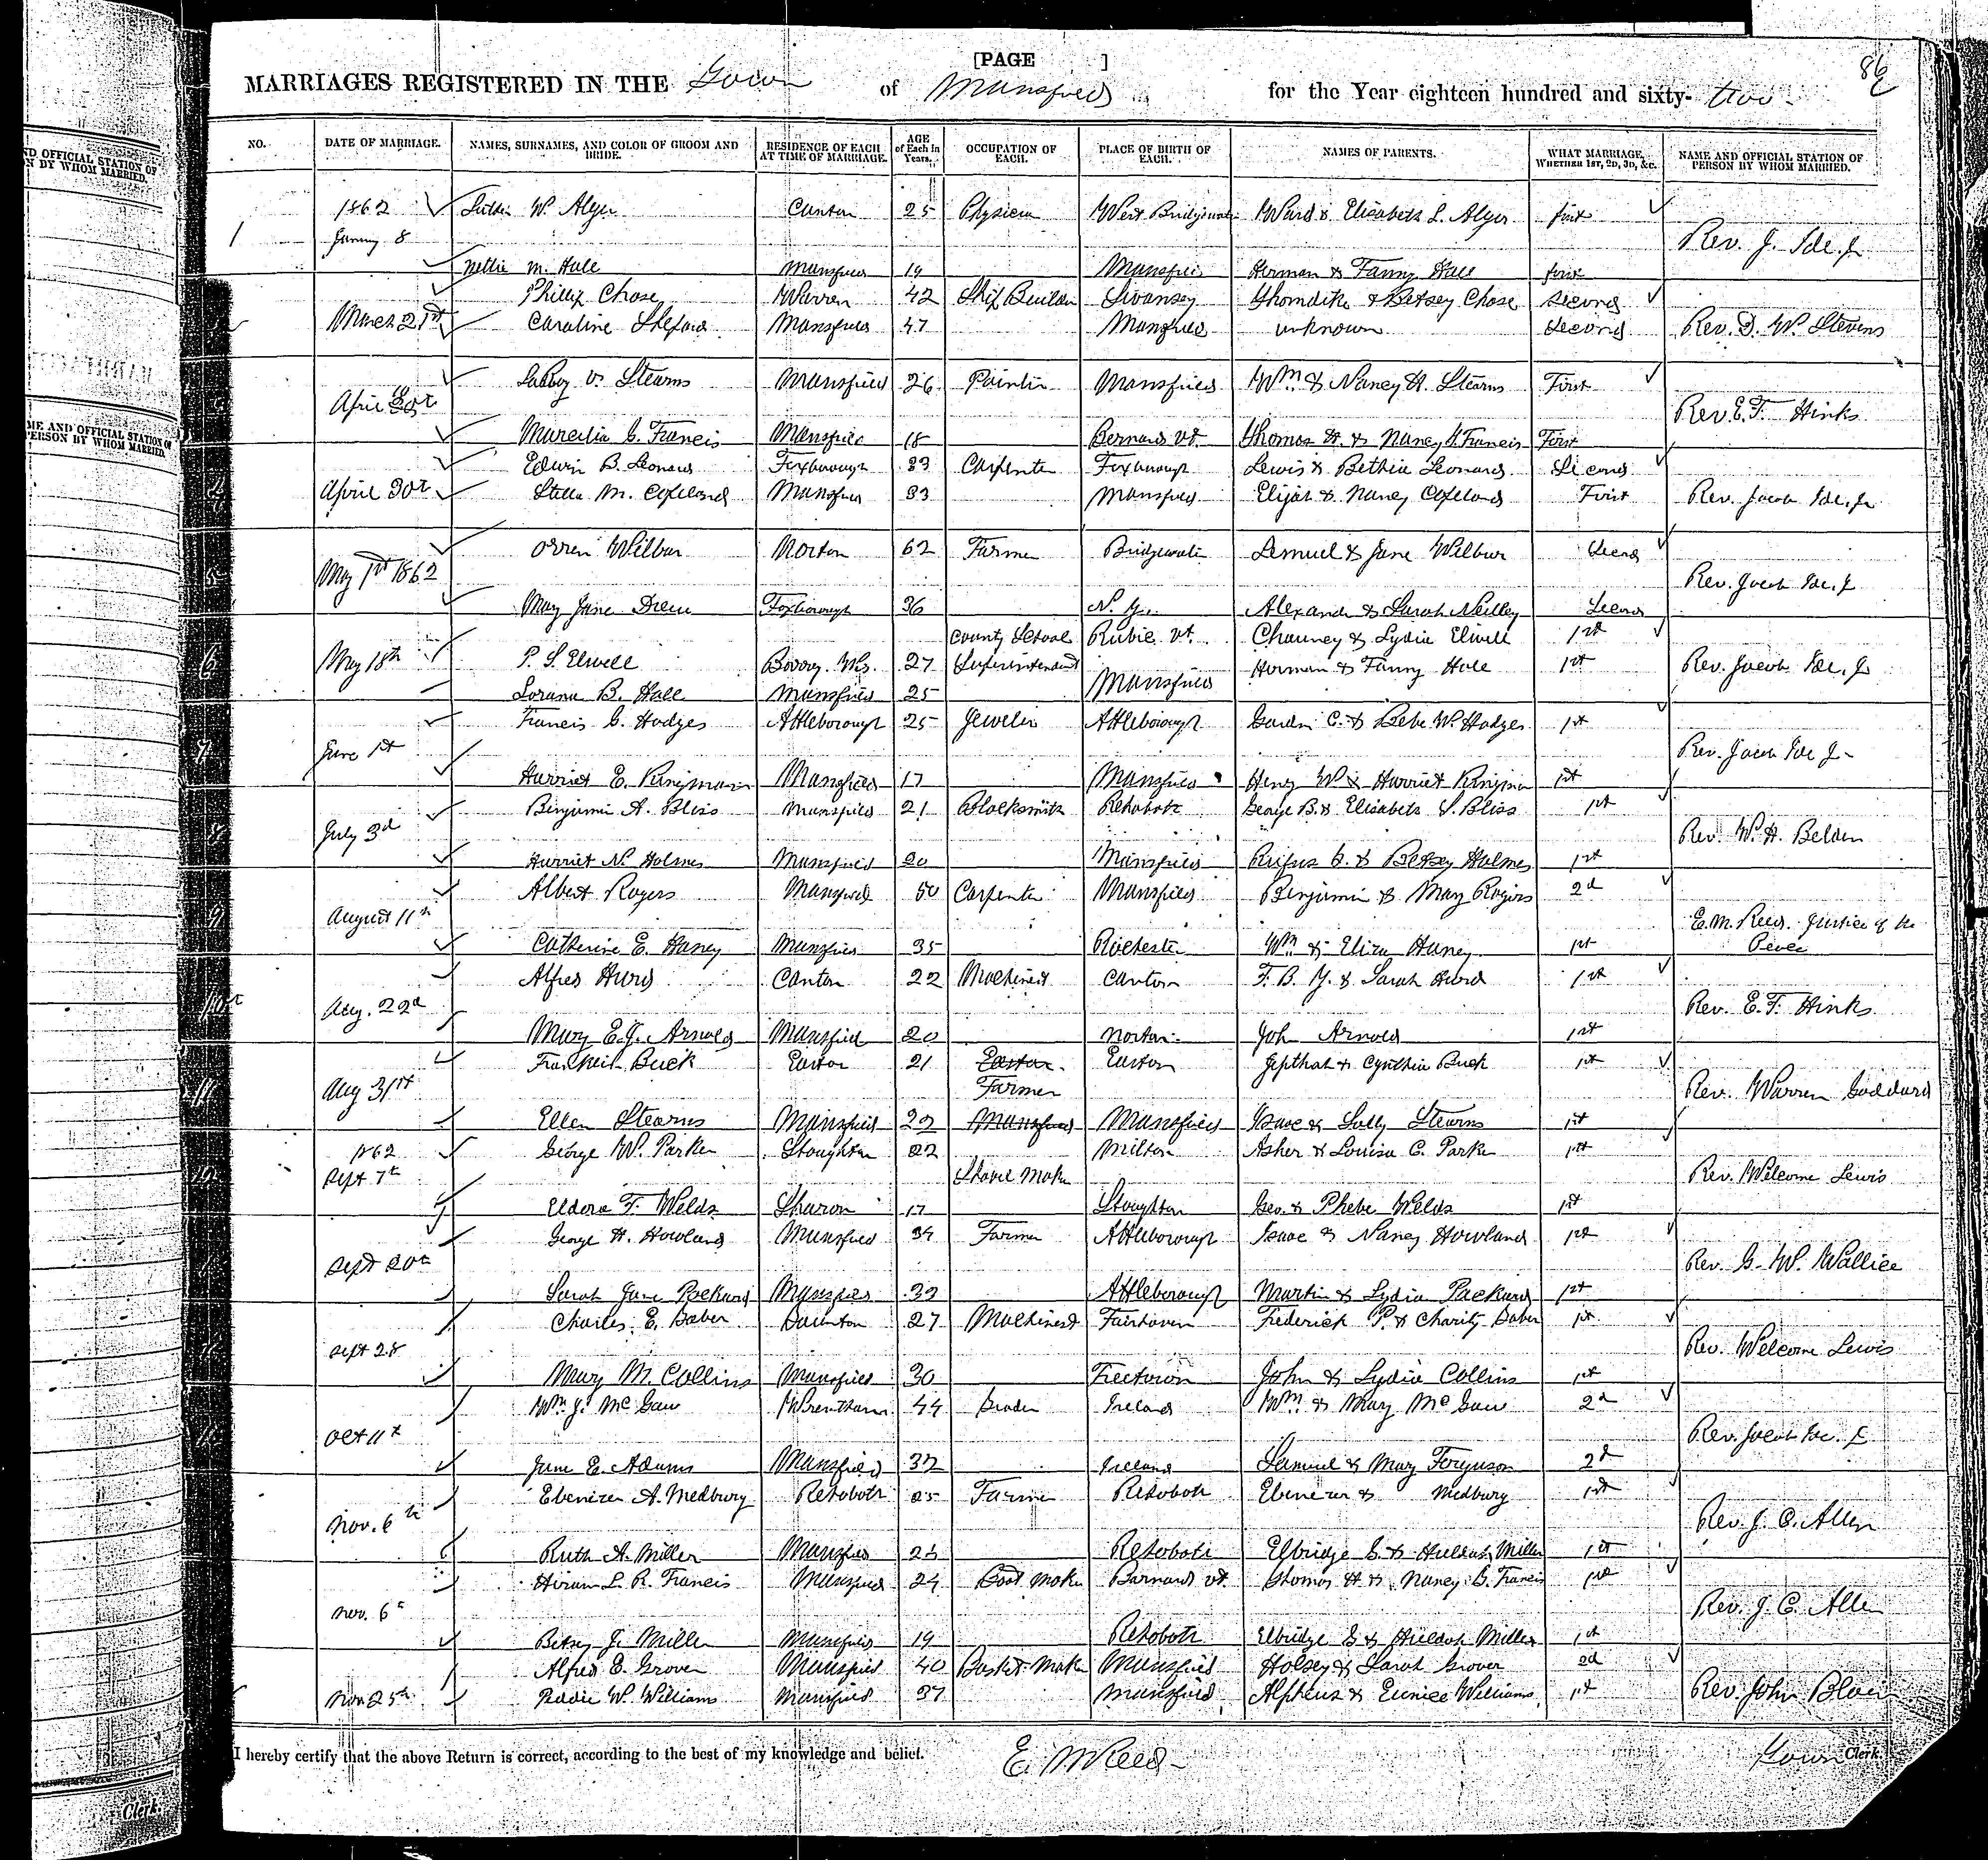 [PAGE ]
86
MARRIAGES REGISTERED IN THE Town of Mansfield for the Year eighteen hundred and sixty- two
NO. DATE OF MARRIAGE. NAMES, SURNAMES, AND COLOR OF GROOM AND BRIDE. RESIDENCE OF EACH AT TIME OF MARRIAGE. AGE of Each in Years. OCCUPATION OF EACH. PLACE OF BIRTH OF EACH. NAMES OF PARENTS. WHAT MARRIAGE, WHETHER 1ST, 2D, 3D, &C. NAME AND OFFICIAL STATION OF PERSON BY WHOM MARRIED.
1862 W. Alger Canton 25 Physician West Bridgewater Ward & Elisabeth L. Alger first
1 January 8 Rev. J. Ide Jr
Nettie M. Hall Mansfield 19 Mansfield Herman & Fanny Hall first
Phillip Chase Warren 42 Ship Builder Swansey Thorndike & Betsey Chase Second
March 21st Caroline Mansfield 47 Mansfield unknown Second Rev. D. W. Stevens
V. Stearns Mansfield 26 Painter Mansfield Wm & Nancy H. Stearns First
April Rev. E. F. Hinks
C. Francis Mansfield 18 Bernard Vt. Thomas H. & Nancy Francis First
Edwin B. Leonard Foxborough 33 Carpenter Foxborough Lewis & Bethia Leonard Second
April 30t Stella M. Copeland Mansfield 33 Mansfield Elijah & Nancy Copeland First Rev. Jacob Ide, Jr
Orren Wilbur Norton 62 Farmer Bridgewater Lemuel & Jane Wilbur Second
5 May 1st 1862 Rev. Jacob Ide, Jr
May Jane Drew Foxborough 36 N. Y. Alexander & Sarah Neilley Second
County School Vt. Chauncy & Lydia Elwell 1st
6 May 18th P. S. Elwell 27 Superintendent Herman & Fanny Hall 1st Rev. Jacob Ide, Jr
Lorana B. Hall Mansfield 25 Mansfield
Francis C. Hodges Attleborough 25 Jeweler Attleborough C. & W. Hodges 1st
7 June 1st Rev. Jacob Ide Jr
Harriet E. Kingman Mansfield 17 Mansfield Henry W. & Harriet Kingman 1st
Benjamin A. Bliss Mansfield 21 Blacksmith Rehoboth George B. & Elisabeth S. Bliss 1st
8 July 3d Rev. W. H. Belden
Harriet N. Holmes Mansfield 20 Mansfield Rufus C. & Betsey Holmes 1st
Albert Rogers Mansfield 50 Carpenter Mansfield Benjamin & Mary Rogers 2d
9 August 11th E. M. Reed. Justice of the Peace
Catherine E. Haney Mansfield 35 Rochester Wm & Eliza Haney 1st
Alfred Hurd Canton 22 Machinest Canton F. B. Y. & Sarah Hurd 1st
10 Aug. 22d Rev. E. F. Hinks
Mary E. J. Arnold Mansfield 20 Norton John Arnold 1st
Franklin Buck Easton 21 Easton. Easton Jepthah & Cynthia Buck 1st
11 Aug 31st Farmer Rev. Warren Goddard
Ellen Stearns Mansfield 22 Mansfield Mansfield Isaac & Sally Stearns 1st
1862 George W. Parker Stoughton 22 Milton Asher & Louisa C. Parker 1st
12 Sept 7th Shovel Maker Rev. Welcome Lewis
Eldora F. Sharon 17 Stoughton Geo. & Phebe 1st
George H. Howland Mansfield 34 Farmer Attleborough Isaac & Nancy Howland 1st
Sept 20th Rev. G. W. Wallice
Sarah Jane Packard Mansfield 33 Attleborough Martin & Lydia Packard 1st
Charles E. Baber 27 Machinest Fairhaven Frederick P. & Charity Baber 1st
Sept 28 Rev. Welcome Lewis
Mary M. Collins Mansfield 30 Freetown John & Lydia Collins 1st
Wm J. McGaw Wrentham 44 Ireland Wm. & Mary McGaw 2d
Oct 11th Rev. Jacob Ide. Jr
Jane E. Adams Mansfield 32 Ireland Samuel & Mary Ferguson 2d
Ebenezer A. Medbury Rehoboth 25 Farmer Rehoboth Ebenezer & Medbury 1st
Nov. 6th Rev. J. C. Allen
Ruth A. Miller Mansfield Rehoboth Elbridge S. & Huldah Miller 1st
Hiram L. R. Francis Mansfield 24 Boot Maker Barnard Vt. Thomas H. & Nancy B. Francis 1st
Nov. 6th Rev. J. C. Allen
Betsey J. Miller Mansfield 19 Rehoboth Elbridge S. & Huldah Miller 1st
Alfred E. Grover Mansfield 40 Basket Maker Mansfield & Sarah Grover 2d
Nov 25th W. Williams Mansfield 37 Mansfield Alpheus & Eunice Williams, 1st Rev. John Blain
I hereby certify that the above Return is correct, according to the best of my knowledge and belief. E. M. Reed Town Clerk.
ND OFFICIAL STATION OF
N BY WHOM MARRIED.
ME AND OFFICIAL STATION OF
PERSON BY WHOM MARRIED.
Clerk.